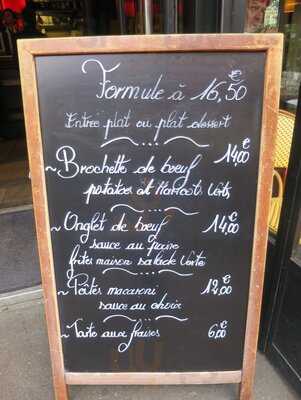 Formule à 16,50 €
Entrée plat ou plat dessert
~ Brochette de bœuf 14,00 €
potatoe et Haricots Verts
~ Onglet de bœuf 14,00 €
sauce au poivre
frites maison salade Verte
~ Pâtes macaroni 12,00 €
sauce au choix
~ Tarte aux fraises 6,00 €